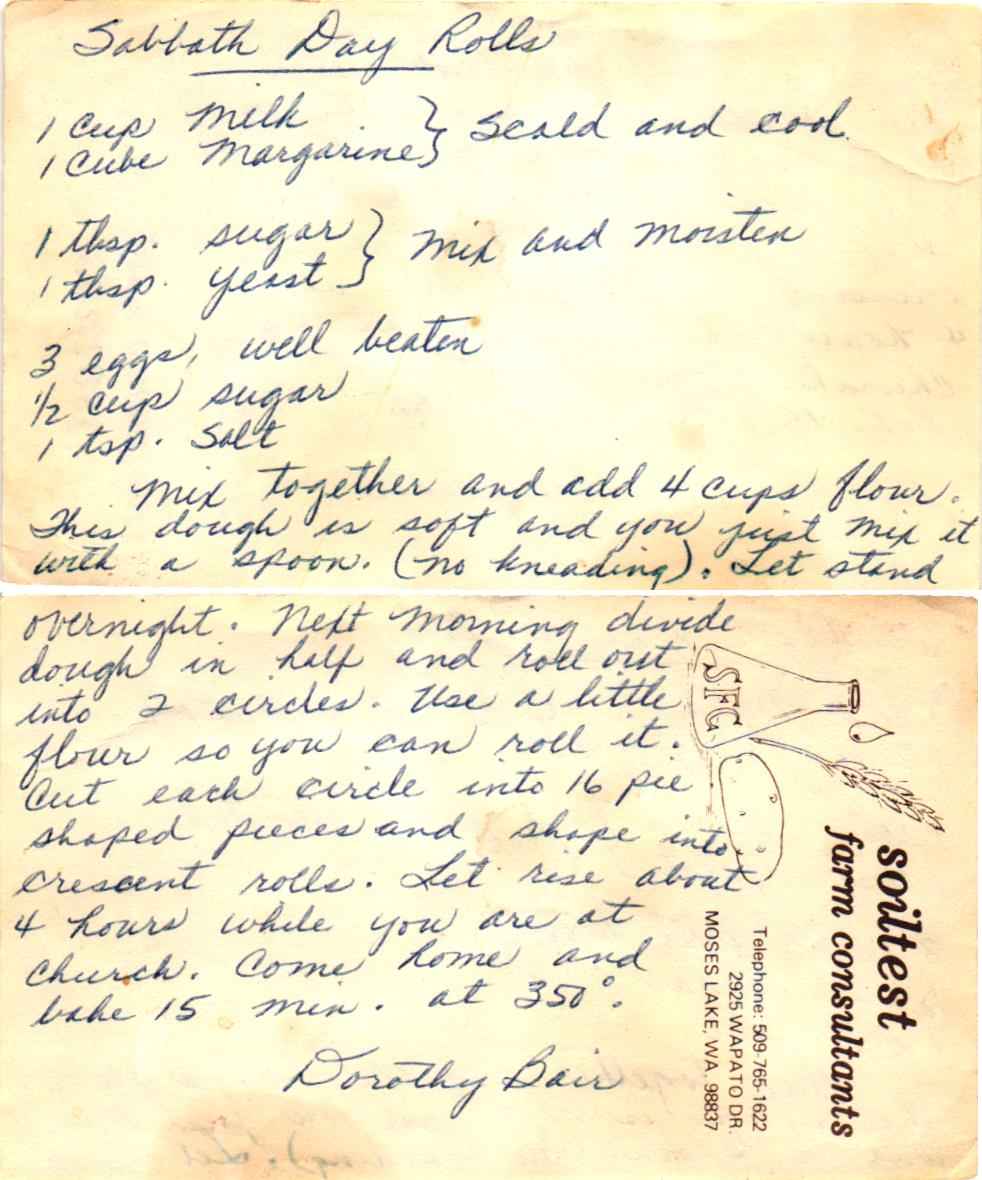 Sabbath Day Rolls
1 cup Milk } Scald and cool.
1 cube Margarine
1 tbsp. sugar } Mix and moisten
1 tbsp. yeast
3 eggs, well beaten
1/2 cup sugar
1 tsp. Salt
Mix together and add 4 cups flour.
This dough is soft and you just mix it
with a spoon. (no kneading). Let stand
overnight. Next morning divide
dough in half and roll out
into 2 circles. Use a little
flour so you can roll it.
Cut each circle into 16 pie
shaped pieces and shape into
crescent rolls. Let rise about
4 hours while you are at
church. Come home and
bake 15 min. at 350°.
Dorothy Bair
SFC
soiltest
farm consultants
Telephone: 509-765-1622
2925 WAPATO DR.
MOSES LAKE, WA. 98837